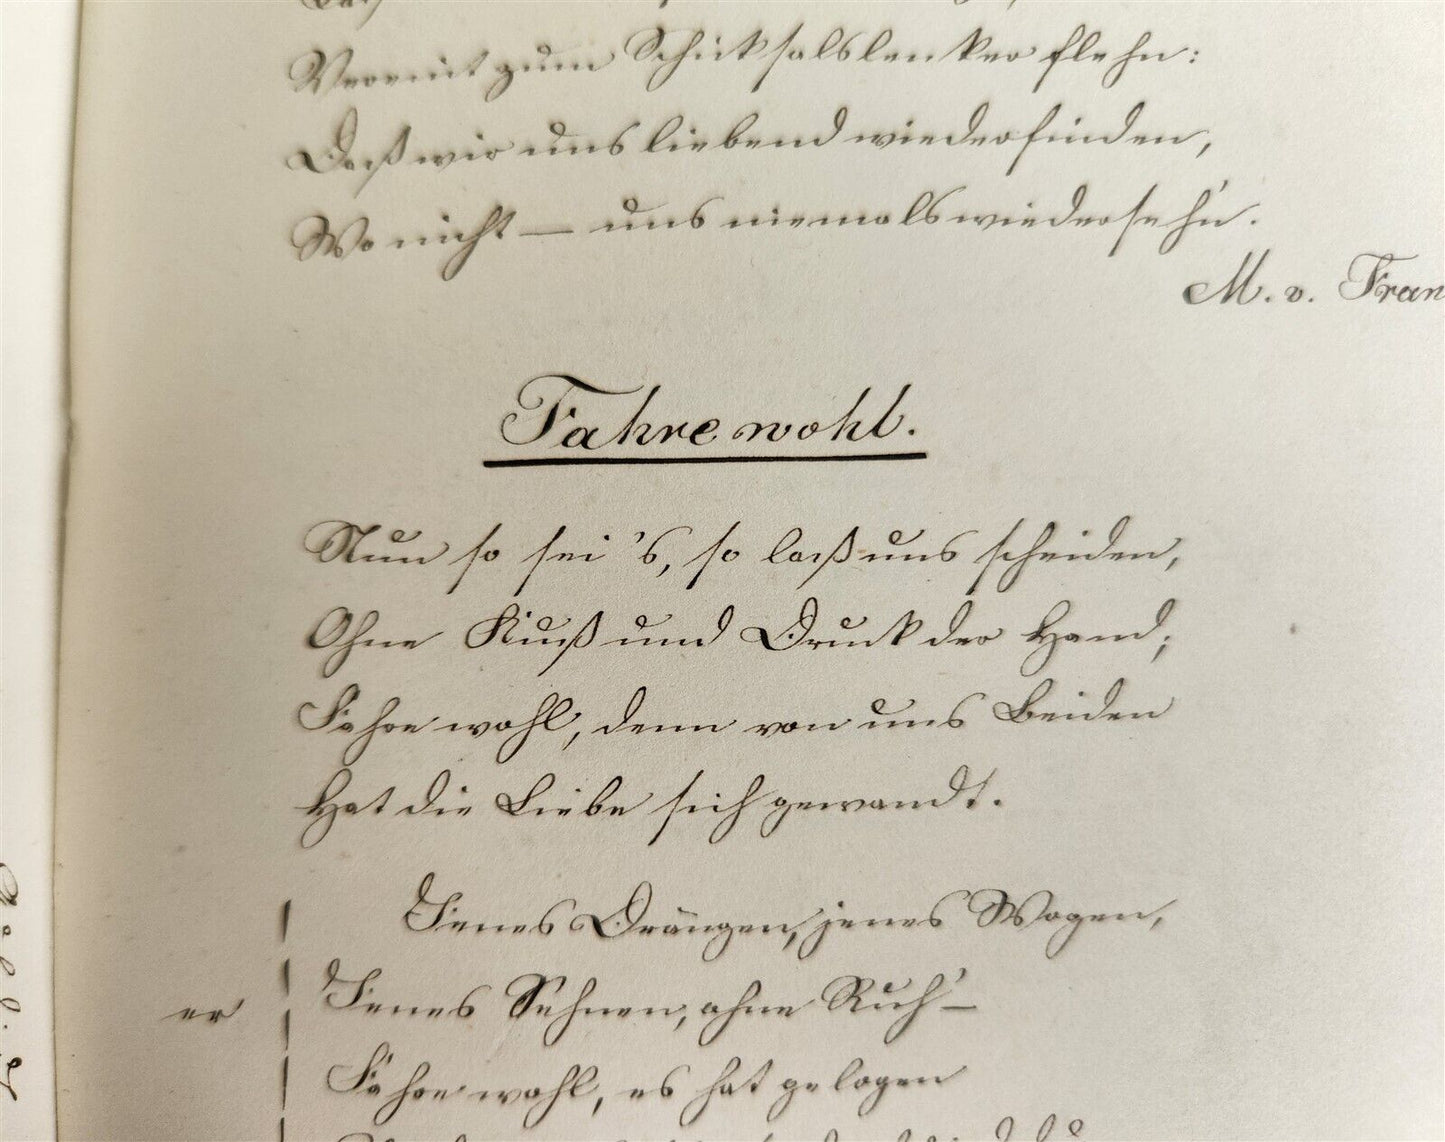 Vereint zum Schicksalslenker flehn:
Daß wir uns liebend wiederfinden,
Wo nicht — uns niemals wiedersehn'.
M. v. Fran
Fahre wohl.
Nun so sei's, so laß uns scheiden,
Ohne Kuß und Druck der Hand;
Fahre wohl, denn von uns Beiden
Hat die Liebe sich gewandt.
Jenes Drängen, jenes Wogen,
Jenes Sehnen, ohne Ruh' —
er
Fahre wohl, es hat gelogen